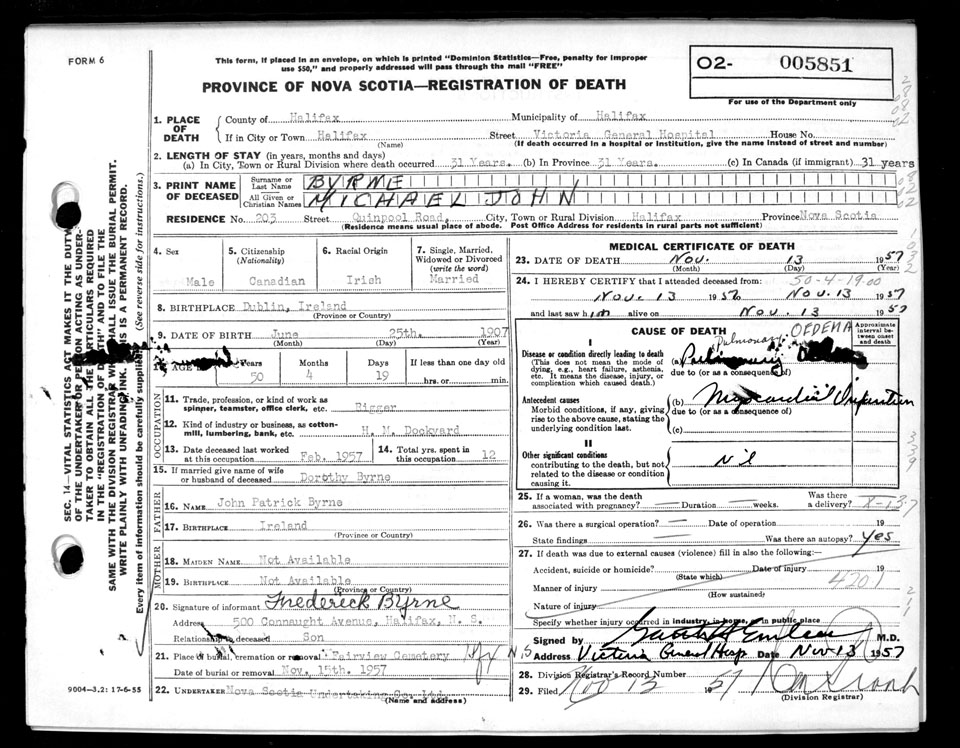 FORM 6
This form, if placed in an envelope, on which is printed "Dominion Statistics—Free, penalty for improper
use $50," and properly addressed will pass through the mail "FREE"
PROVINCE OF NOVA SCOTIA—REGISTRATION OF DEATH
02- 005851
For use of the Department only
1. PLACE OF DEATH
County of Halifax Municipality of Halifax
If in City or Town Halifax Street Victoria General Hospital House No.
(Name) (If death occurred in a hospital or institution, give the name instead of street and number)
2. LENGTH OF STAY (in years, months and days)
(a) In City, Town or Rural Division where death occurred 31 Years. (b) In Province 31 Years. (c) In Canada (if immigrant) 31 years
3. PRINT NAME OF DECEASED
Surname or Last Name BYRME
All Given or Christian Names MICHAEL JOHN
RESIDENCE No. 203 Street Quinpool Road, City, Town or Rural Division Halifax Province Nova Scotia
(Residence means usual place of abode. Post Office Address for residents in rural parts not sufficient)
4. Sex Male
5. Citizenship (Nationality) Canadian
6. Racial Origin Irish
7. Single, Married, Widowed or Divorced (write the word) Married
8. BIRTHPLACE Dublin, Ireland
(Province or Country)
9. DATE OF BIRTH June 25th. 1907
(Month) (Day) (Year)
AGE Years 50 Months 4 Days 19 If less than one day old hrs. or min.
OCCUPATION
11. Trade, profession, or kind of work as spinner, teamster, office clerk, etc. Rigger
12. Kind of industry or business, as cotton-mill, lumbering, bank, etc. H. M. Dockyard
13. Date deceased last worked at this occupation Feb. 1957
14. Total yrs. spent in this occupation 12
15. If married give name of wife or husband of deceased Dorothy Byrne
FATHER
16. NAME John Patrick Byrne
17. BIRTHPLACE Ireland
(Province or Country)
MOTHER
18. MAIDEN NAME Not Available
19. BIRTHPLACE Not Available
(Province or Country)
20. Signature of informant Frederick Byrne
Address 500 Connaught Avenue, Halifax, N. S.
Relationship to deceased Son
21. Place of burial, cremation or removal Fairview Cemetery Hfx N.S
Date of burial or removal Nov. 15th. 1957
22. UNDERTAKER Nova Scotia Undertaking Co. Ltd.
(Name and address)
MEDICAL CERTIFICATE OF DEATH
23. DATE OF DEATH Nov. 13 1957
(Month) (Day) (Year)
24. I HEREBY CERTIFY that I attended deceased from: 50-4-19.00
Nov. 13 1956 Nov. 13 1957
and last saw him alive on Nov. 13 1957
CAUSE OF DEATH
Approximate interval between onset and death
I
Disease or condition directly leading to death
(This does not mean the mode of dying, e.g., heart failure, asthenia, etc. It means the disease, injury, or complication which caused death.)
Pulmonary OEDEMA
(a) Pulmonary
due to (or as a consequence of)
Antecedent causes
Morbid conditions, if any, giving rise to the above cause, stating the underlying condition last.
(b) Myocardial Infarction
due to (or as a consequence of)
(c)
II
Other significant conditions
contributing to the death, but not related to the disease or condition causing it.
Nil
25. If a woman, was the death associated with pregnancy? — Duration — weeks. Was there a delivery? X-13-7
26. Was there a surgical operation? — Date of operation 19
State findings — Was there an autopsy? Yes
27. If death was due to external causes (violence) fill in also the following:—
Accident, suicide or homicide? Date of injury 19
(State which)
Manner of injury 4201
(How sustained)
Nature of injury
Specify whether injury occurred in industry, in home, or in public place
Signed by M.D.
Address Victoria General Hosp Date Nov 13 1957
28. Division Registrar's Record Number
29. Filed Nov 13 1957
(Division Registrar)
SEC. 14—VITAL STATISTICS ACT MAKES IT THE DUTY
OF THE UNDERTAKER OR PERSON ACTING AS UNDER-
TAKER TO OBTAIN ALL THE PARTICULARS REQUIRED
IN THE "REGISTRATION OF DEATH" AND TO FILE THE
SAME WITH THE DIVISION REGISTRAR WHO SHALL ISSUE THE BURIAL PERMIT.
WRITE PLAINLY WITH UNFADING INK. THIS IS A PERMANENT RECORD.
Every item of information should be carefully supplied. (See reverse side for instructions.)
9004—3.2: 17-6-55